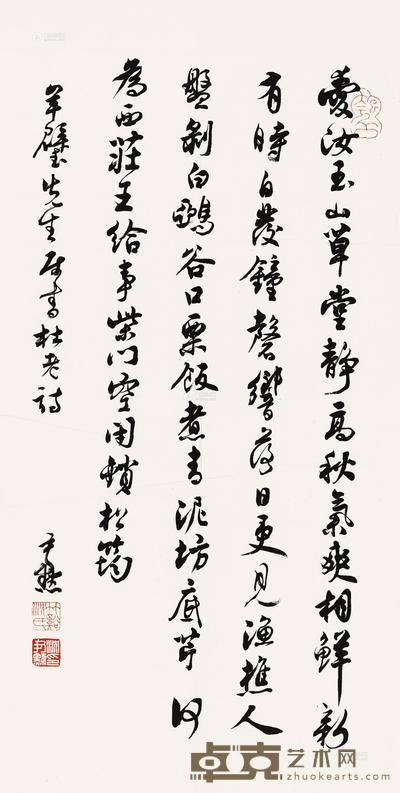 愛汝玉山草堂靜高秋氣爽相鮮新
有時自發鐘磬響落日更見漁樵人
盤剝白鵶谷口栗飯煮青泥坊底芹何
為西莊王給事柴門空閉鎖松筠
羊璧先生屬書杜老詩
尹默
竹谿沈氏
卓克艺术网
zhuokearts.com